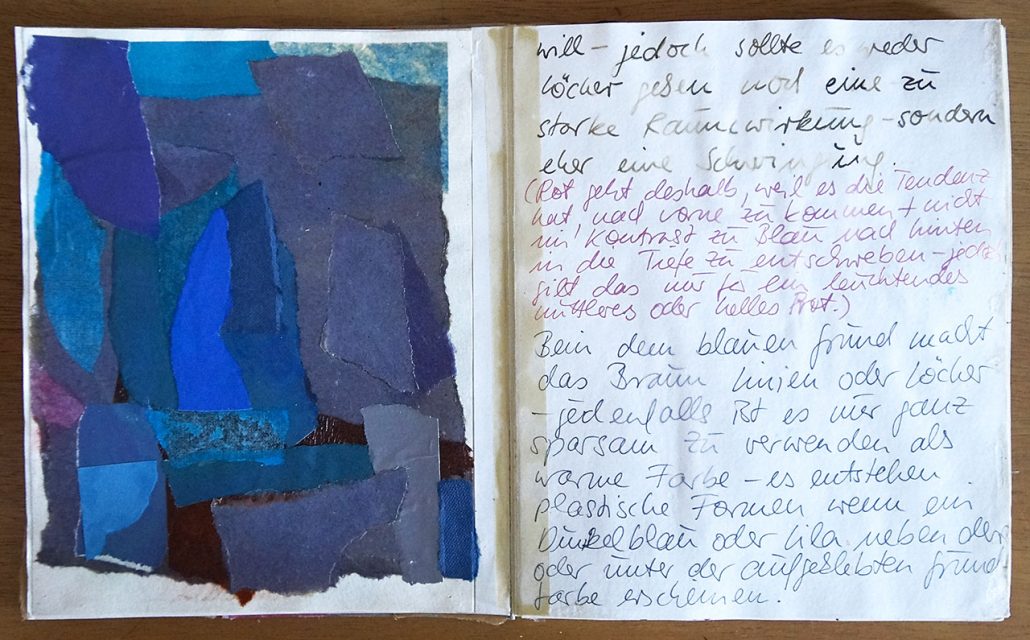 will – jedoch sollte es weder
Löcher geben noch eine zu
starke Raumwirkung – sondern
eher eine Schwingung.
(Rot geht deshalb, weil es die Tendenz
hat nach vorne zu kommen + nicht
im Kontrast zu Blau nach hinten
in die Tiefe zu entschweben – jedoch
gilt das nur für ein leuchtendes
mittleres oder helles Rot.)
Bein dem blauen Grund macht
das Braun Linien oder Löcher
– jedenfalls ist es nur ganz
sparsam zu verwenden als
warme Farbe – es entstehen
plastische Formen wenn ein
Dunkelblau oder Lila neben der
oder unter der aufgeklebten Grund-
farbe erscheinen.